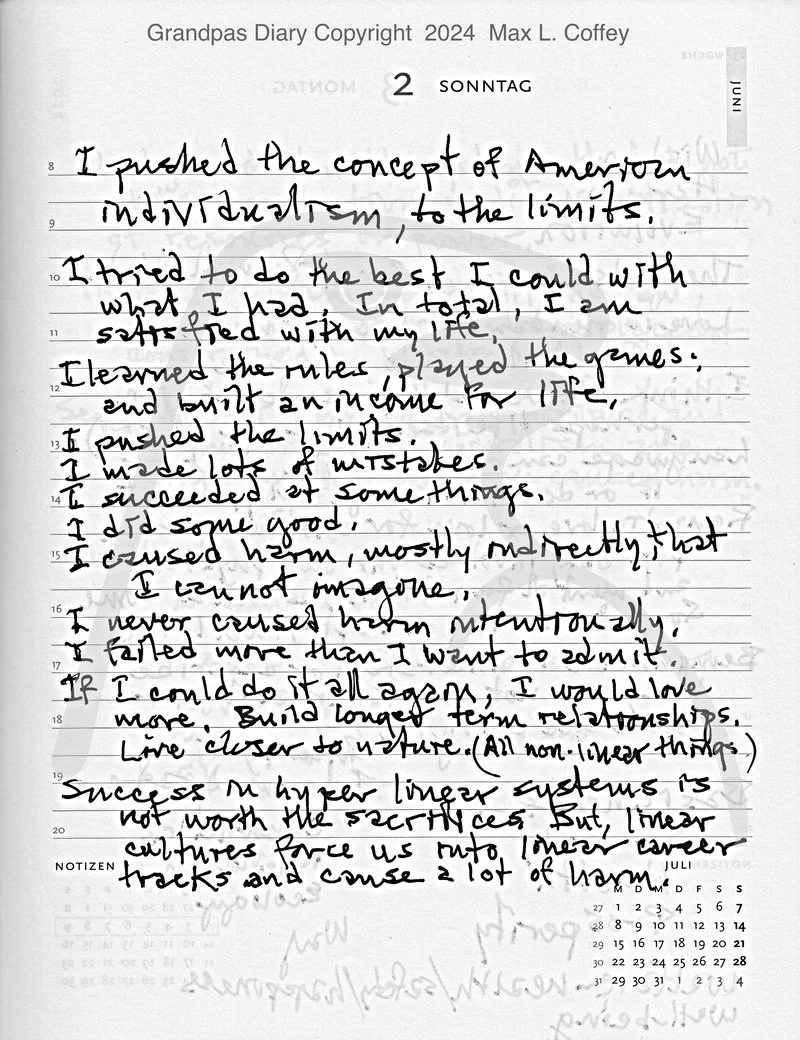 Grandpas Diary Copyright 2024 Max L. Coffey
2 SONNTAG
JUNI
8 I pushed the concept of American
individualism, to the limits.
9
10 I tried to do the best I could with
what I had. In total, I am
11 satisfied with my life.
I learned the rules, played the games;
12 and built an income for life.
13 I pushed the limits.
I made lots of mistakes.
14 I succeeded at some things.
I did some good.
15 I caused harm, mostly indirectly, that
I cannot imagine.
16 I never caused harm intentionally.
I failed more than I want to admit.
17
If I could do it all again, I would love
18 more. Build longer term relationships.
Live closer to nature. (All non-linear things)
19 Success in hyper linear systems is
not worth the sacrifices. But, linear
20 cultures force us into linear career
tracks and cause a lot of harm.
NOTIZEN
JULI
M D M D F S S
27 1 2 3 4 5 6 7
28 8 9 10 11 12 13 14
29 15 16 17 18 19 20 21
30 22 23 24 25 26 27 28
31 29 30 31 1 2 3 4